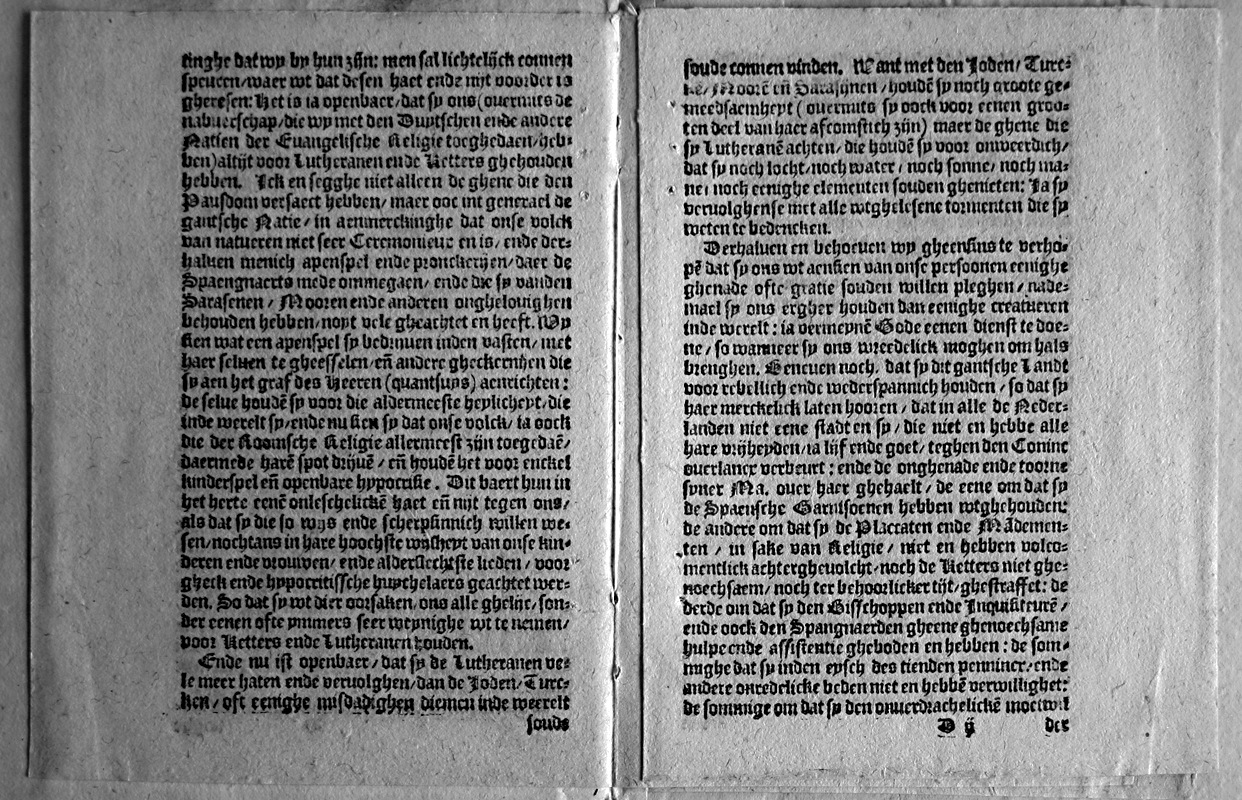 tinghe dat wy by hun zijn: men sal lichtelijck connen
speuren/waer wt dat desen haet ende nijt voorder is
gheresen: Het is ia openbaer/dat sy ons (ouermits de
nabuerschap/die wy met den Duytschen ende andere
Natien der Euangelische Religie toeghedaen/heb-
ben) altijt voor Lutheranen ende Ketters ghehouden
hebben. Ick en segghe niet alleen de ghene die den
Pausdom versaect hebben/maer ooc int generael de
gantsche Natie/ in aenmerckinghe dat onse volck
van natueren niet seer Ceremonieux en is/ ende der-
haluen menich apenspel ende pronckerijen/daer de
Spaengnaerts mede ommegaen/ ende die sy vanden
Sarasenen / Mooren ende anderen onghelouighen
behouden hebben/noyt vele gheachtet en heeft. Wy
sien wat een apenspel sy bedrijuen inden vasten/ met
haer seluen te gheesselen/ eñ andere gheckernijen die
sy aen het graf des Heeren (quantsuys) aenrichten:
de selue houdẽ sy voor die aldermeeste heylicheyt/die
inde werelt sy/ende nu sien sy dat onse volck/ ia oock
die der Roomsche Religie allermeest zijn toegedaẽ/
daermede harẽ spot drijuẽ/ eñ houdẽ het voor enckel
kinderspel eñ openbare hypocrisie. Dit baert hun in
het herte eenẽ onleschelickẽ haet eñ nijt tegen ons/
als dat sy die so wijs ende scherpsinnich willen we-
sen/nochtans in hare hoochste wijsheyt van onse kin-
deren ende vrouwen/ ende alderslechtste lieden/ voor
gheck ende hypocritissche huychelaers geachtet wer-
den. So dat sy wt dier oorsaken/ons alle ghelijc/son-
der eenen ofte ymmers seer weynighe wt te nemen/
voor Ketters ende Lutheranen houden.
Ende nu ist openbaer/ dat sy de Lutheranen ve-
le meer haten ende veruolghen/dan de Joden/Turc-
ken/ oft eenighe misdadighen diemen inde weerelt
soude
soude connen vinden. Want met den Joden/ Turc-
ke/ Moorẽ eñ Sarasijnen /houdẽ sy noch groote ge-
meedsaemheyt (ouermits sy oock voor eenen groo-
ten deel van haer afcomstich zijn) maer de ghene die
sy Lutheranẽ achten/ die houdẽ sy voor onweerdich/
dat sy noch locht/noch water/ noch sonne/ noch ma-
ne/ noch eenighe elementen souden ghenieten: Ja sy
veruolghense met alle wtghelesene tormenten die sy
weten te bedencken.
Derhaluen en behoeuen wy gheensins te verho-
pẽ dat sy ons wt aensien van onse persoonen eenighe
ghenade ofte gratie souden willen pleghen/ nade-
mael sy ons ergher houden dan eenighe creatueren
inde werelt: ia vermeynẽ Gode eenen dienst te doe-
ne/ so wanneer sy ons wreedelick moghen om hals
brenghen. Beneuen noch/ dat sy dit gantsche Landt
voor rebellich ende wederspannich houden/ so dat sy
haer merckelick laten hooren/ dat in alle de Neder-
landen niet eene stadt en sy/ die niet en hebbe alle
hare vrijheyden/ia lijf ende goet/ teghen den Coninc
ouerlanc verbeurt: ende de onghenade ende toorne
syner Ma. ouer haer ghehaelt/ de eene om dat sy
de Spaensche Garnisoenen hebben wtghehouden:
de andere om dat sy de Placcaten ende Mãdemen-
ten / in sake van Religie / niet en hebben volco-
mentlick achterghevolcht/noch de Ketters niet ghe-
noechsaem/ noch ter behoorlicker tijt/ghestraffet: de
derde om dat sy den Bisschoppen ende Inquisiteurẽ/
ende oock den Spangnaerden gheene ghenoechsame
hulpe ende assistentie gheboden en hebben: de som-
mighe dat sy inden eysch des tienden penninc/ende
andere onredelicke beden niet en hebbẽ verwillighet:
de sommige om dat sy den onuerdrachelickẽ moetwil
D ij der